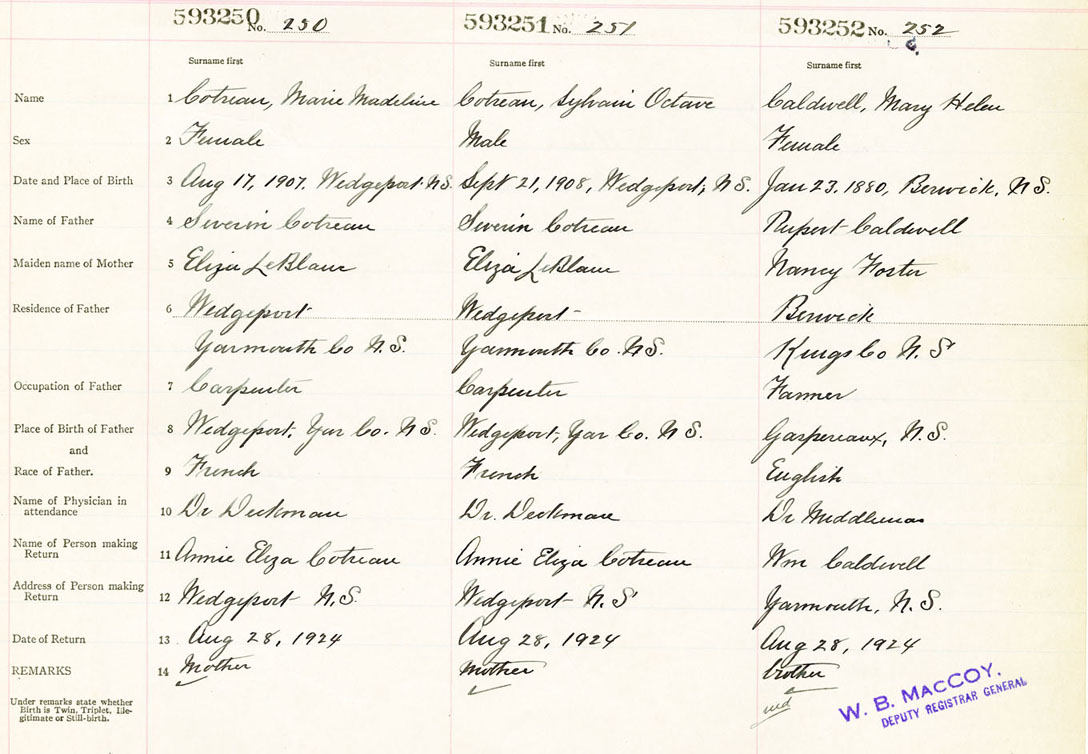 593250 No. 250 593251 No. 251 593252 No. 252
c.
Surname first Surname first Surname first
Name 1 Cotreau, Marie Madeline Cotreau, Sylvain Octave Caldwell, Mary Helen
Sex 2 Female Male Female
Date and Place of Birth 3 Aug 17, 1907, Wedgeport N.S. Sept 21, 1908, Wedgeport, N.S. Jan 23, 1880, Berwick, N S.
Name of Father 4 Severin Cotreau Severin Cotreau Rupert Caldwell
Maiden name of Mother 5 Eliza LeBlanc Eliza LeBlanc Nancy Foster
Residence of Father 6 Wedgeport Wedgeport Berwick
Yarmouth Co N.S. Yarmouth Co. N.S. Kings Co N. S
Occupation of Father 7 Carpenter Carpenter Farmer
Place of Birth of Father 8 Wedgeport, Yar Co. N S. Wedgeport, Yar Co. N S. Gaspereaux, N.S.
and
Race of Father. 9 French French English
Name of Physician in
attendance 10 Dr Deckman Dr. Deckman Dr Middlemas
Name of Person making
Return 11 Annie Eliza Cotreau Annie Eliza Cotreau Wm Caldwell
Address of Person making
Return 12 Wedgeport N.S. Wedgeport N. S Yarmouth, N.S.
Date of Return 13 Aug 28, 1924 Aug 28, 1924 Aug 28, 1924
REMARKS 14 Mother Mother brother
Under remarks state whether
Birth is Twin, Triplet, Ille-
gitimate or Still-birth.
W. B. MACCOY.
DEPUTY REGISTRAR GENERAL